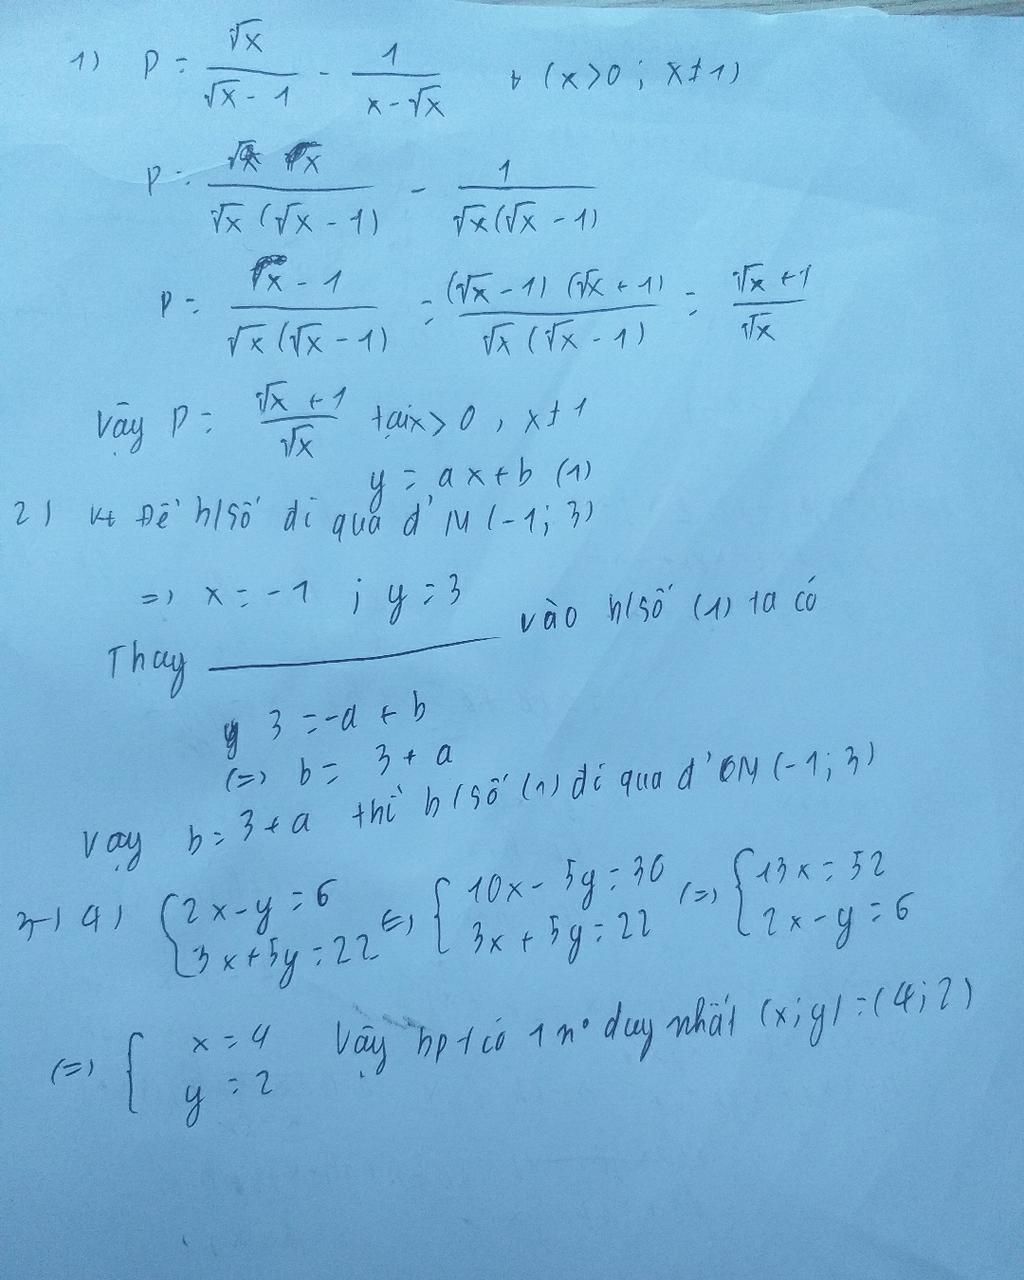 1) P = √x / (√x - 1) - 1 / (x - √x) (x>0 ; x≠1)
P = x / (√x (√x - 1)) - 1 / (√x (√x - 1))
P = (x - 1) / (√x (√x - 1)) = ((√x - 1) (√x + 1)) / (√x (√x - 1)) = (√x + 1) / √x
Vậy P = (√x + 1) / √x tại x > 0 , x ≠ 1
y = ax + b (1)
2) Để h/số đi qua đ' M (-1; 3)
=> x = -1 ; y = 3
Thay ——— vào h/số (1) ta có
3 = -a + b
(=) b = 3 + a
Vậy b = 3 + a thì h/số (1) đi qua đ' M (-1; 3)
3) a) { 2x - y = 6 ; 3x + 5y = 22 (=) { 10x - 5y = 30 ; 3x + 5y = 22 (=) { 13x = 52 ; 2x - y = 6
(=) { x = 4 ; y = 2 Vậy hpt có 1 n° duy nhất (x; y) = (4; 2)